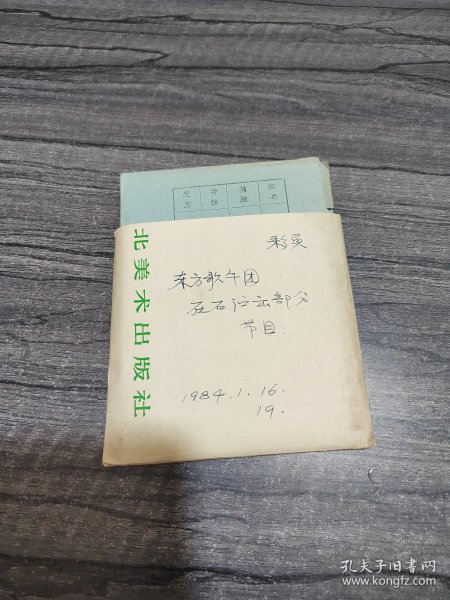 彩负
东方歌午团
在石演出部分
节目
1984.1.16.
19.
北美术出版社
孔夫子旧书网
www.kongfz.com